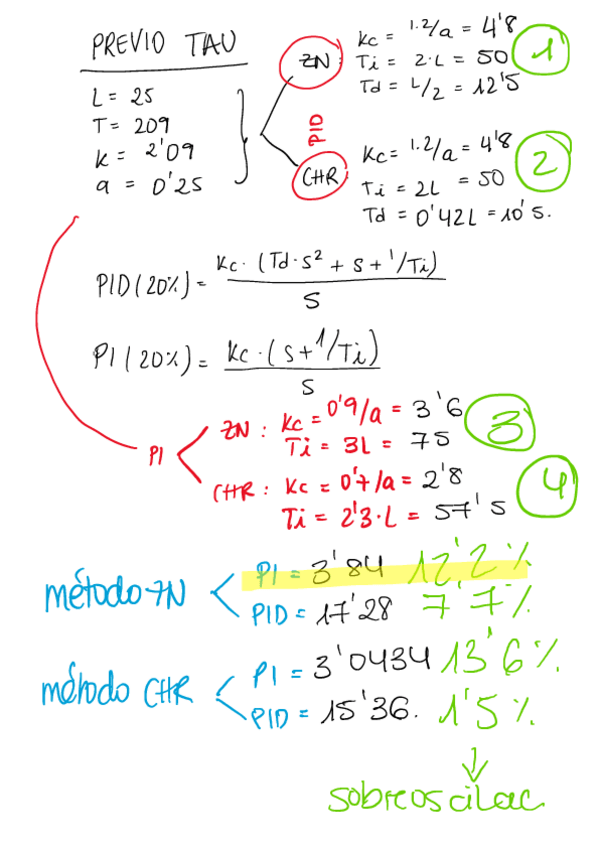 PREVIO TAU
L = 25
T = 209
k = 2'09
a = 0'25
PID
ZN:
Kc = 1.2/a = 4'8
Ti = 2·L = 50
Td = L/2 = 12'5
1
CHR
Kc = 1.2/a = 4'8
Ti = 2L = 50
Td = 0'42L = 10'5.
2
PID (20%) = Kc · (Td·s² + s + 1/Ti) / S
PI (20%) = Kc · (s + 1/Ti) / S
PI
ZN: Kc = 0'9/a = 3'6
Ti = 3L = 75
3
CHR: Kc = 0'7/a = 2'8
Ti = 2'3·L = 57'5
4
método ZN
PI = 3'84 12'2%
PID = 17'28 7'7%
método CHR
PI = 3'0434 13'6%
PID = 15'36. 1'5%
sobreoscilac